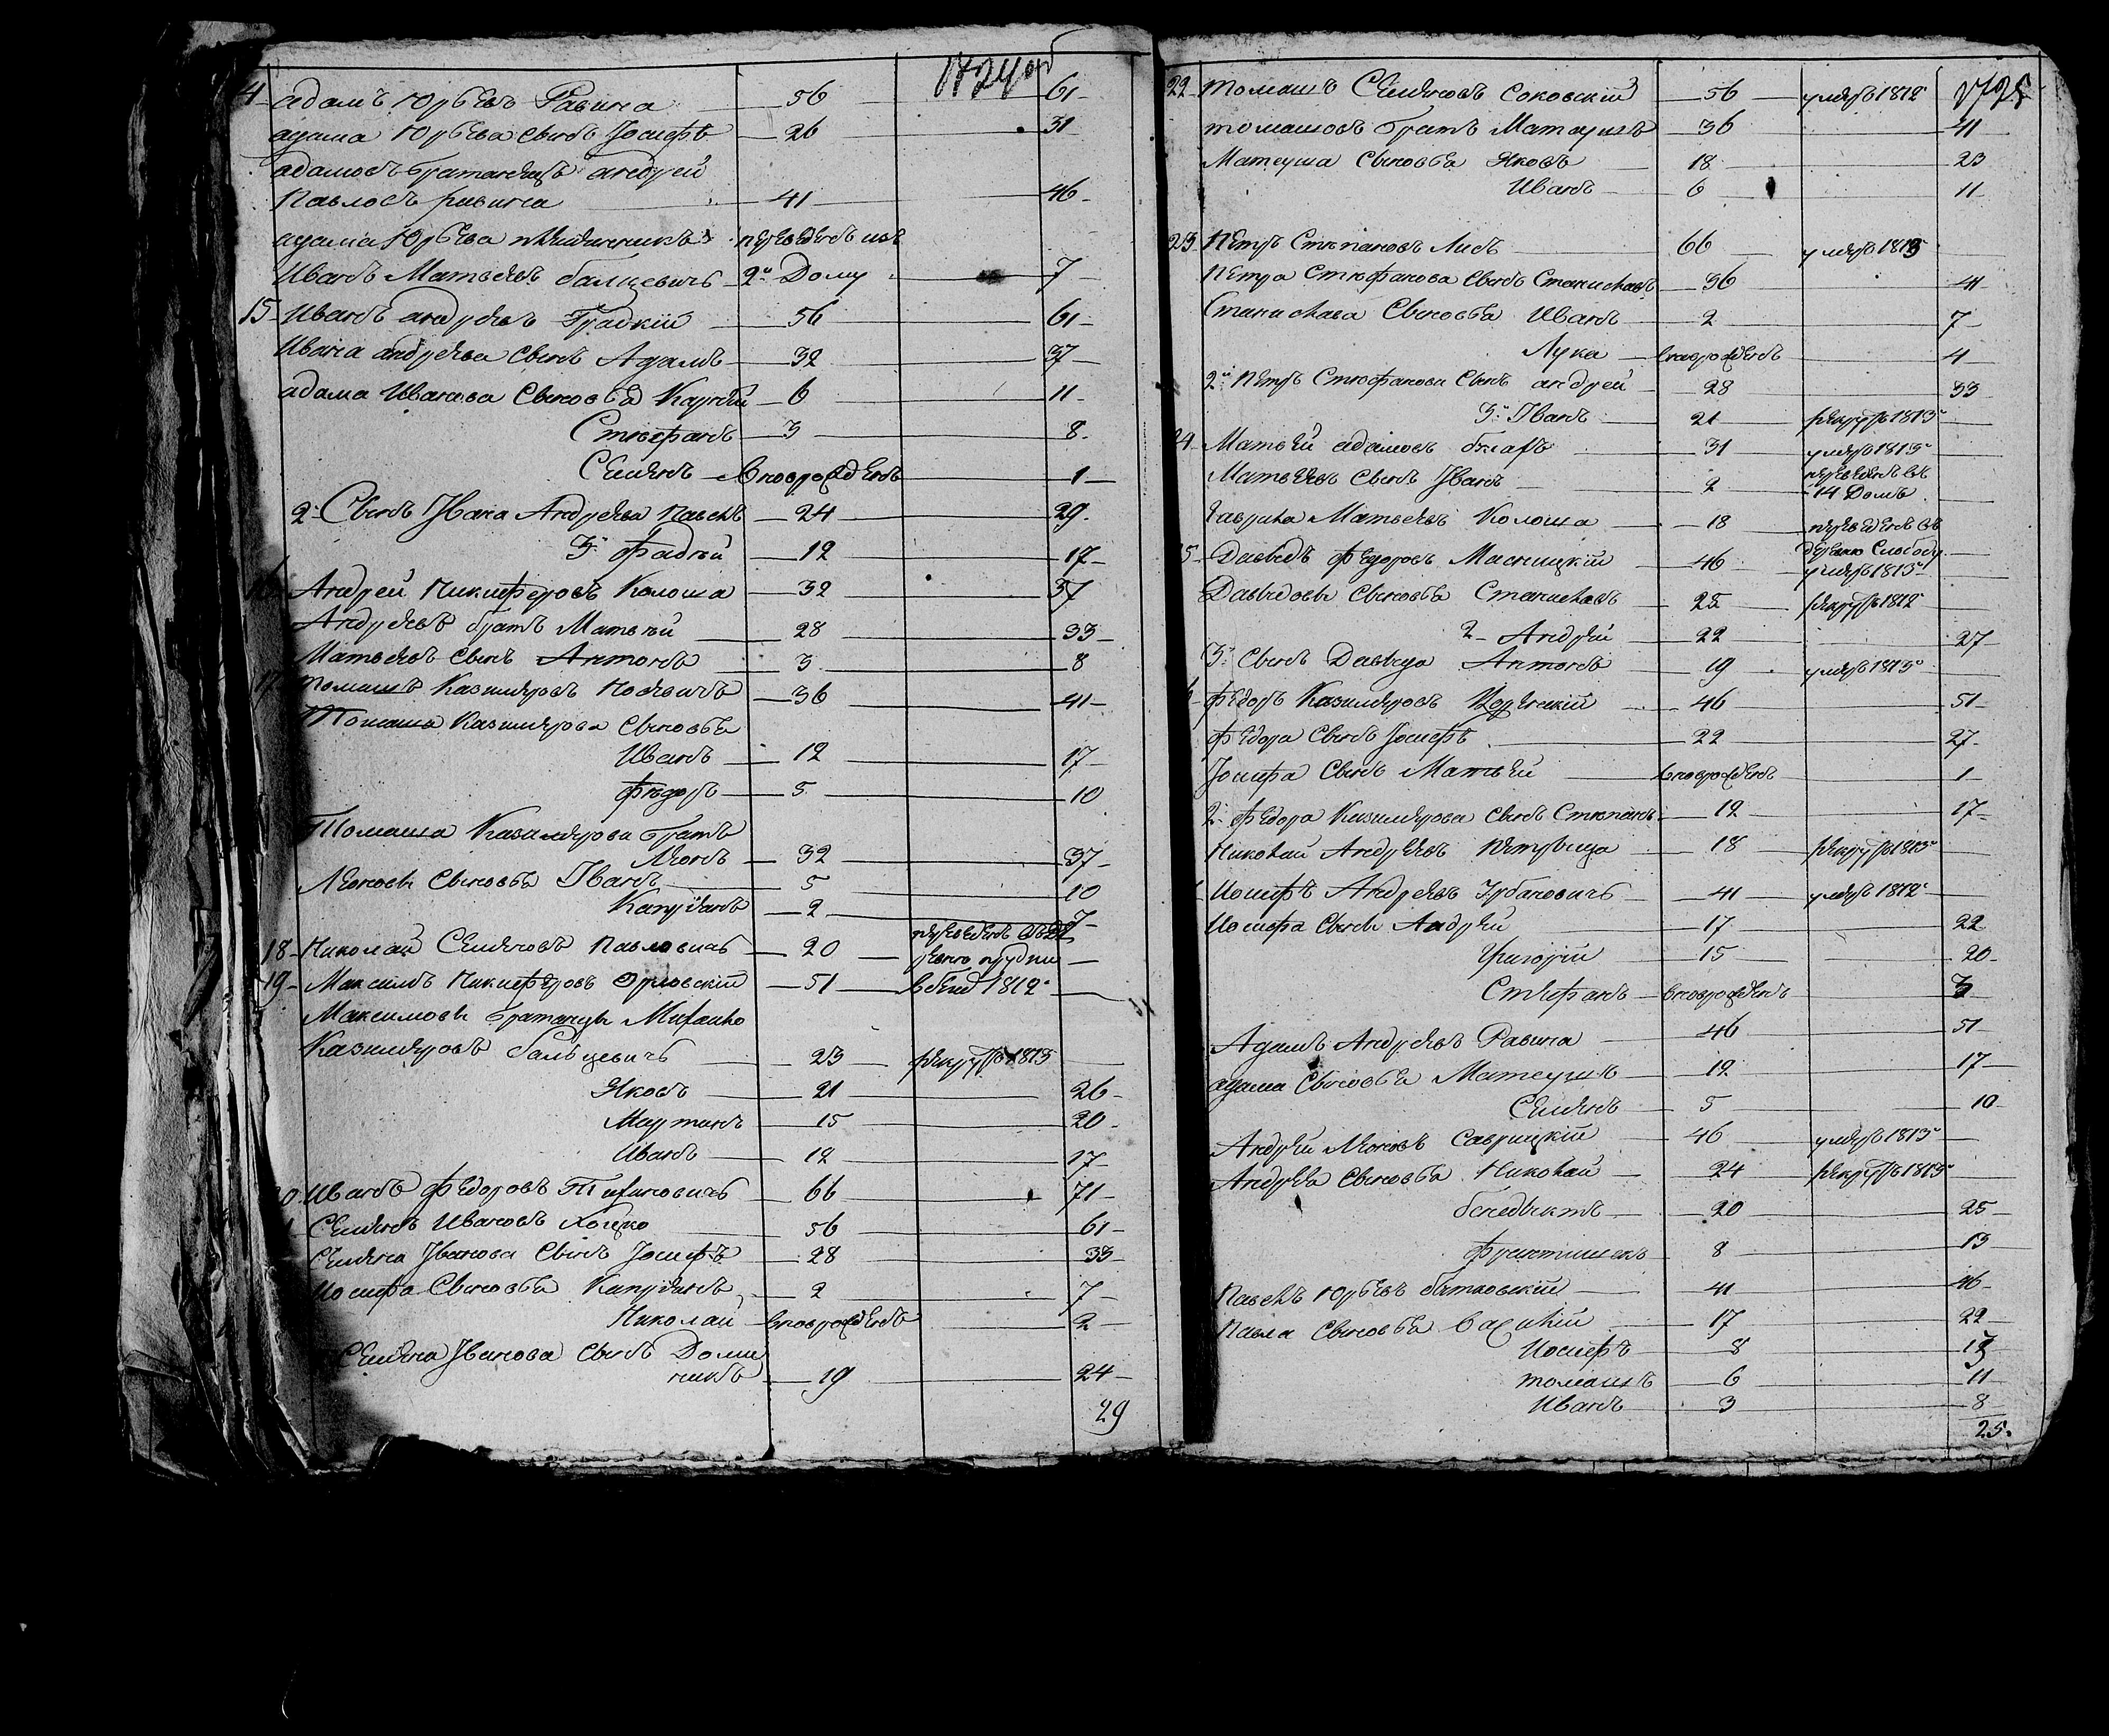 адамъ Юрьевъ Равина 56 61
адама Юрьева сынъ Іосифъ 26 31
адамовъ братанецъ андрей
Павловъ равина 41 46
адама Юрьева племянникъ переведенъ изъ
Иванъ Матвѣевъ балцевичъ 2го Дому 7
15 Иванъ андреевъ Градкій 56 61
Ивана андреева сынъ Адамъ 32 37
адама Иванова сыновья Карпѣй 6 11
Стефанъ 3 8
Семенъ вновророжденъ 1
2й Сынъ Ивана Андреева Павелъ 24 29
3й Фадѣй 12 17
Андрей Никифоровъ Колоша 32 37
Андреевъ братъ Матвѣй 28 33
Матвѣевъ сынъ Антонъ 3 8
17 Томашъ Казимеровъ 36 41
Томаша Казимерова сыновья
Иванъ 12 17
Федоръ 5 10
Томаша Казимерова братъ
Леонъ 32 37
Леоновы сыновья Іванъ 5 10
Капріянъ 2 7
переведенъ въ де
18 Николай Семеновъ Павловичъ 20 ревню прудки
19 Максимъ Никифоровъ Орловскій 51 в бегах 1812
Максимовы братанцы Михайло
Казимеровъ бальцевичъ 23 рекрутъ 1813
Яковъ 21 26
Мартинъ 15 20
Иванъ 12 17
Иванъ Федоровъ Тихановичъ 66 71
Семенъ Ивановъ Хоцко 56 61
Семена Іванова сынъ Іосифъ 28 33
Иосифа сыновья Капріянъ 2 7
Николай вноврожденъ 2
Семена Іванова сынъ Доми
никъ 19 24
29
22 Томашъ Семеновъ Соковскій 56 умеръ 1812
томашовъ братъ Матеушъ 36 41
Матеуша сыновья Яковъ 18 23
Иванъ 6 11
23 Петръ Степановъ Лисъ 66 умеръ 1813
Петра Стефанова сынъ Станиславъ 36 41
Станислава сыновья Иванъ 2 7
Лука вноврожденъ 4
2й Петръ Стефанова сынъ андрей 28 33
3й Іванъ 21 рекрутъ 1813
24 Матвей адамовъ 31 умеръ 1813
Матвѣевъ сынъ Іванъ 2 переведенъ въ
14 Домъ
Гаврила Матвѣевъ Колоша 18 переведенъ въ
деревню Слободу
Давыдъ Федоровъ Масницкій 46 умеръ 1813
Давыдовы сыновья Станиславъ 25 рекрутъ 1812
2 Андрей 22 27
3й сынъ Давыда Антонъ 19 умеръ 1813
Федоръ Казимеровъ 46 51
Федора сынъ Іосифъ 22 27
Іосифа сынъ Матвѣй вноврожденъ 1
2й Федора Казимерова сынъ Степанъ 12 17
Николай Андреевъ Петровица 18 рекрутъ 1813
Иосифъ Андреевъ Урбановичъ 41 умеръ 1812
Иосифа сыны Андрей 17 22
Григорій 15 20
Стефанъ вноврожденъ 3
Адамъ Андреевъ Равина 46 51
адама сыновья Матеушъ 12 17
Семенъ 5 10
Андрей Леоновъ Саврицкій 46 умеръ 1813
Андрея сыновья Николай 24 рекрутъ 1813
бенедыктъ 20 25
Франтишекъ 8 13
Павелъ Юрьевъ бятковскій 41 46
Павла сыновья Василій 17 22
Иосифъ 8 13
томашъ 6 11
Иванъ 3 8
25